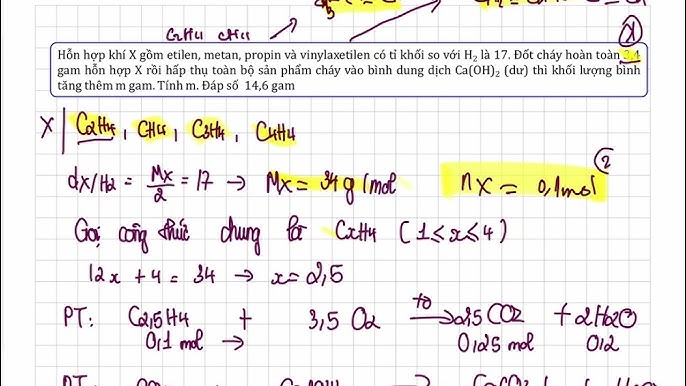 C2H4 CH4
Hỗn hợp khí X gồm etilen, metan, propin và vinylaxetilen có tỉ khối so với H2 là 17. Đốt cháy hoàn toàn 3,4
gam hỗn hợp X rồi hấp thụ toàn bộ sản phẩm cháy vào bình dung dịch Ca(OH)2 (dư) thì khối lượng bình
tăng thêm m gam. Tính m. Đáp số 14,6 gam
X | C2H4, CH4, C3H4, C4H4
dX/H2 = Mx/2 = 17 → Mx = 34 g/mol nX = 0,1mol (2)
Gọi công thức chung là CxH4 (1≤x≤4)
12x + 4 = 34 → x = 2,5
PT: C2,5H4 + 3,5 O2 →to 2,5 CO2 + 2H2O
0,1 mol → 0,25 mol 0,2
PT: